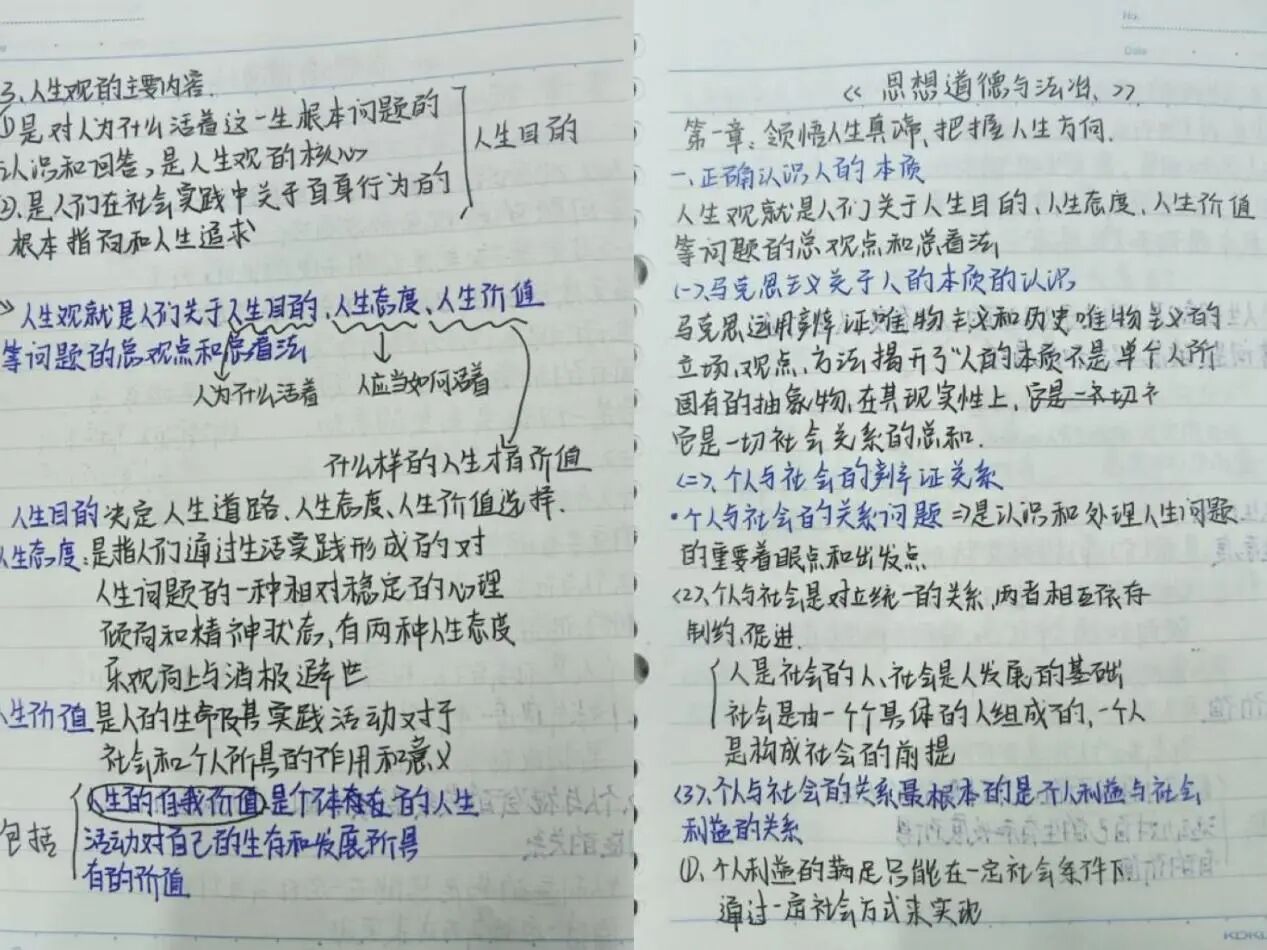 3、人生观的主要内容.
①是对人为什么活着这一生根本问题的
认识和回答,是人生观的核心
②.是人们在社会实践中关于自身行为的
根本指向和人生追求
人生目的
人生观就是人们关于人生目的、人生态度、人生价值
等问题的总观点和总看法
人为什么活着
人应当如何活着
什么样的人生才有价值
人生目的决定人生道路、人生态度、人生价值选择.
人生态度:是指人们通过生活实践形成的对
人生问题的一种相对稳定的心理
倾向和精神状态,有两种人生态度
乐观向上与消极避世
人生价值是人的生命及其实践活动对于
社会和个人所具的作用和意义
包括
人生的自我价值是个体存在的人生
活动对自己的生存和发展所具
有的价值
No.
Date
《思想道德与法治、》
第一章:领悟人生真谛,把握人生方向.
一、正确认识人的本质
人生观就是人们关于人生目的、人生态度、人生价值
等问题的总观点和总看法
(一)、马克思主义关于人的本质的认识
马克思运用辩证唯物主义和历史唯物主义的
立场、观点、方法揭开了“人的本质不是单个人所
固有的抽象物,在其现实性上,
它是一切社会关系的总和.
(二)、个人与社会的辩证关系
·个人与社会的关系问题⇒是认识和处理人生问题
的重要着眼点和出发点
(2)、个人与社会是对立统一的关系,两者相互依存
制约,促进.
人是社会的人、社会是人发展的基础
社会是由一个个具体的人组成的,一个人
是构成社会的前提
(3)、个人与社会的关系最根本的是个人利益与社会
利益的关系
①、个人利益的满足只能在一定社会条件下
通过一定社会方式来实现
KOKU